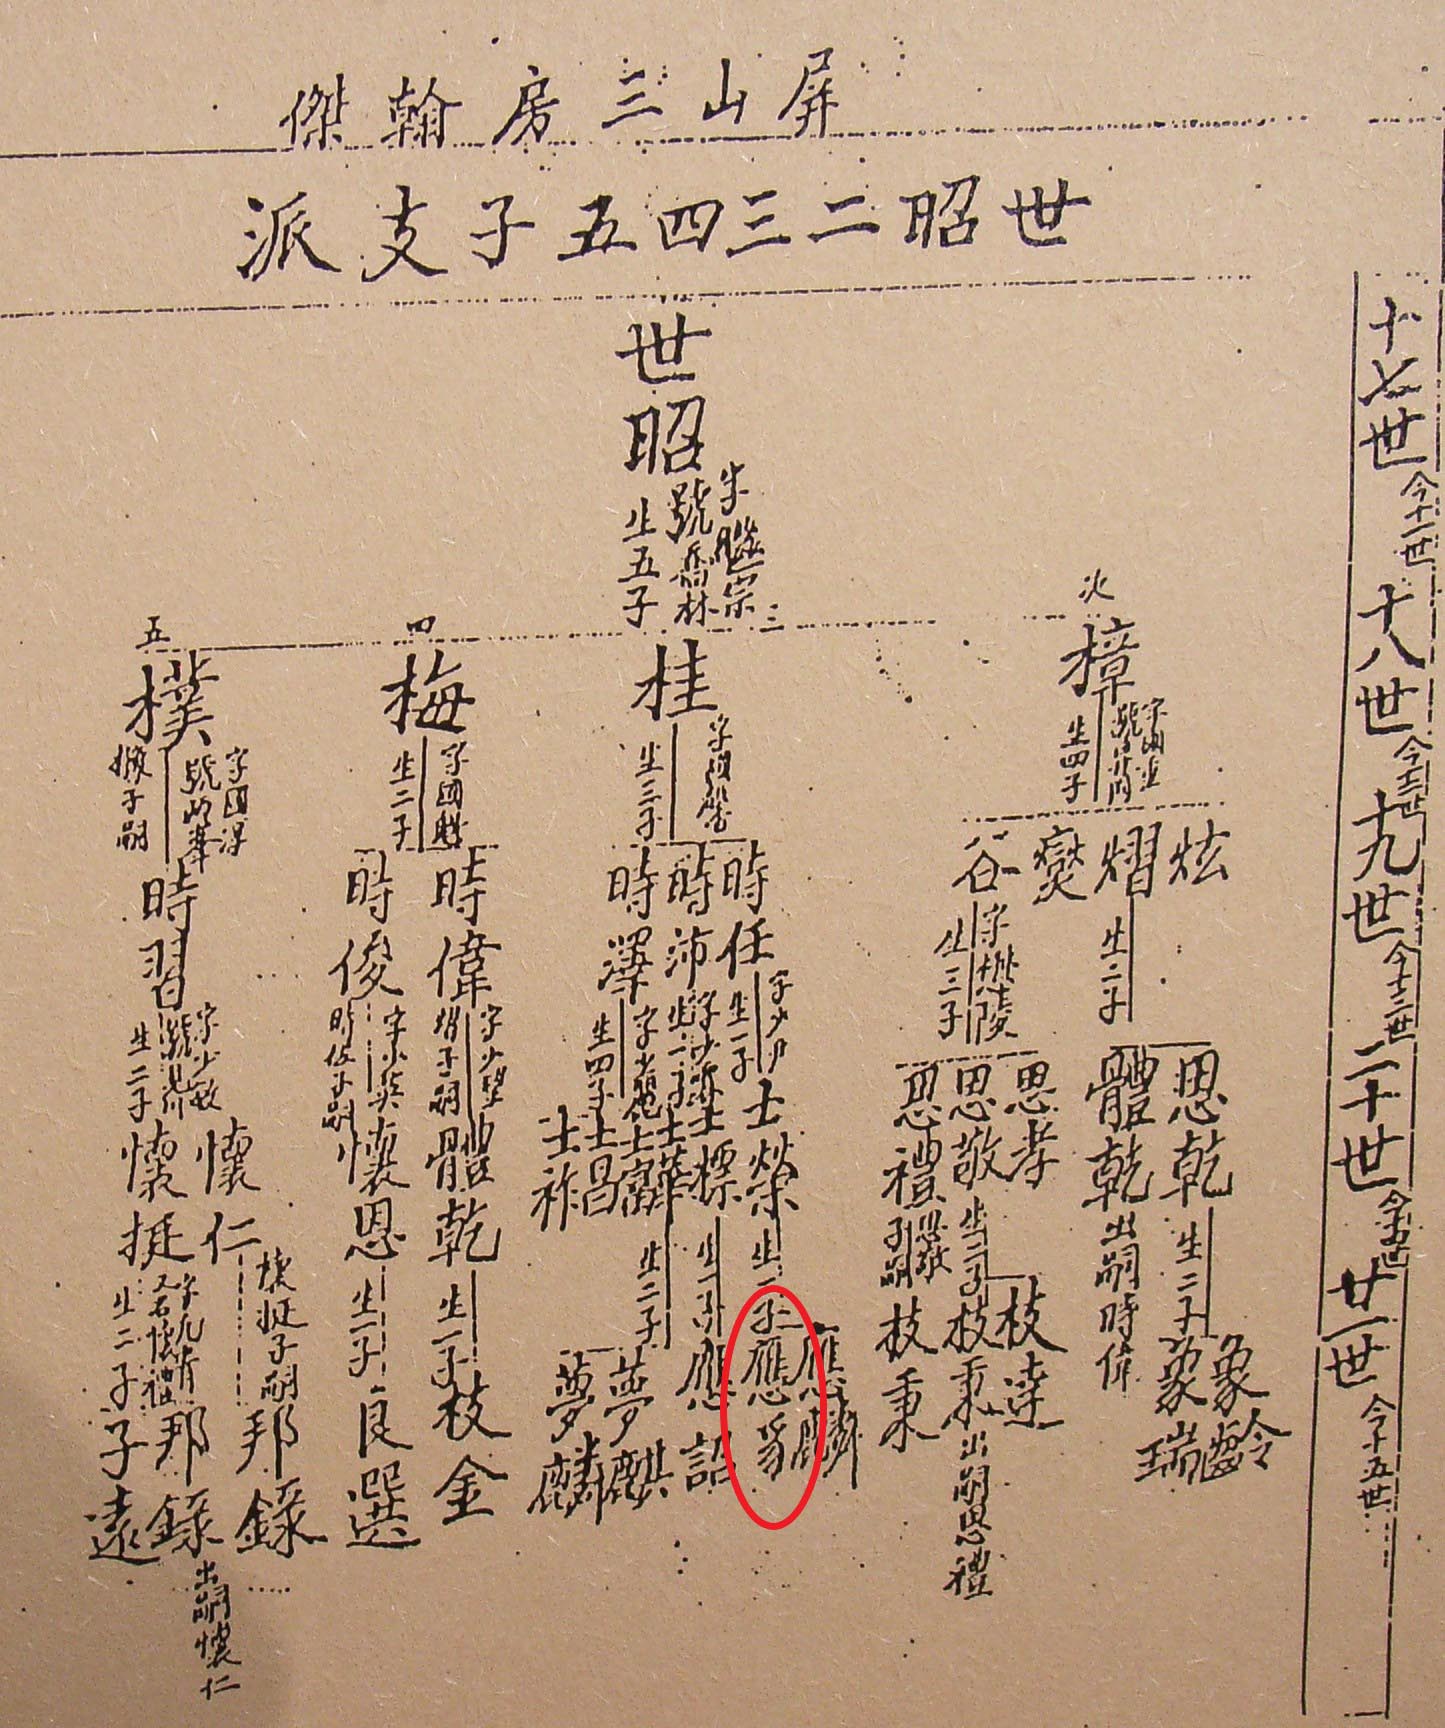 屏山三房翰傑
世昭二三四五子支派
十七世 今十一世
十八世 今十二世
十九世 今十三世
二十世 今十四世
廿一世 今十五世
世昭
字 宗
號喬林
生五子
次
樟
生四子
炫
熠
生二子
燮
谷
生三子
恩乾
生二子
體乾
出嗣時偉
思孝
思敬
生二子
思禮
思敬子嗣
象齡
象瑞
枝達
枝秉
出嗣思禮
枝秉
三
桂
字國馨
生三子
時任
字少尹
生一子
時沛
生二子
時澤
生四子
士榮
生二子
士標
生一子
士華
生二子
士富
士昌
士祚
應麟
應豸
應詔
夢麒
夢麟
四
梅
生二子
時偉
字少望
時俊
字少英
時偉子嗣
體乾
生一子
懷恩
生一子
枝金
良選
五
樸
嫩子嗣
時習
字少敏
生二子
懷仁
懷挺子嗣
懷挺
又名懷禮
生二子
邦錄
邦錄
出嗣懷仁
子遠